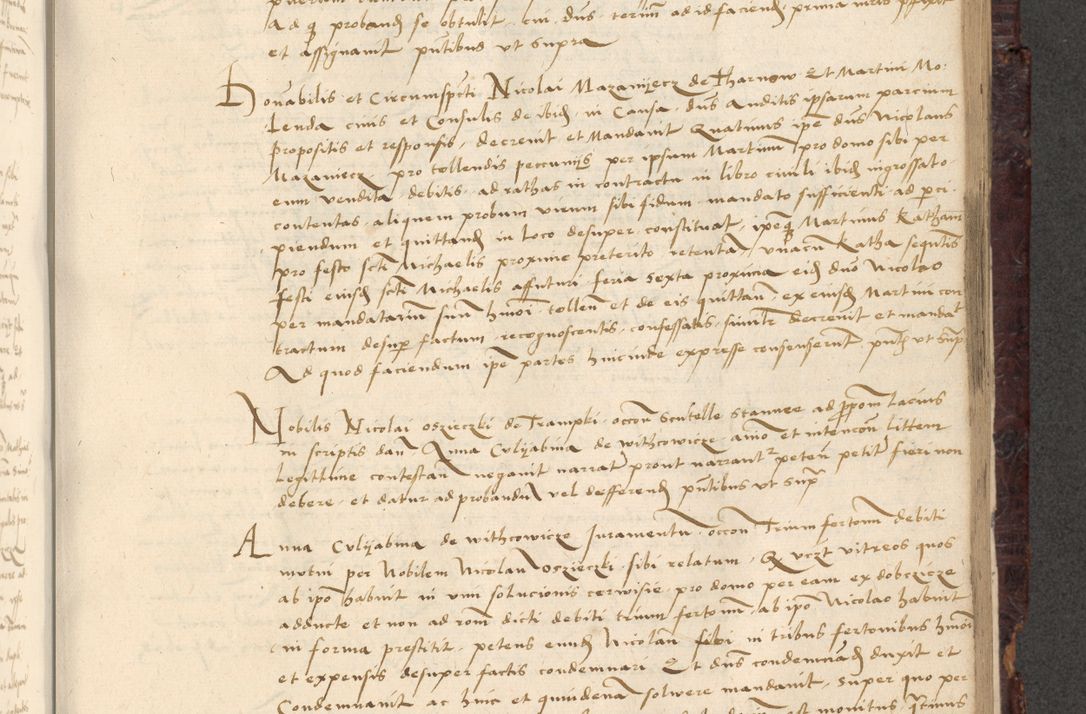 Ad q proband se obtulit cui dns terim ad id faciend prima iuris
et assignavit pntibus ut supra
Honabilis et Circumspcti Nicolai Mazaniecz de Tharnow Et Martini Mo-
Lenda civis et Consulis de ibid in Causa dns Auditis ipsarum parcium
propositis et responsis, decrevit et Mandavit Quatinus ipe dns Nicolaus
Mazaniecz pro tollendis peccunijs per ipsum Martinum pro domo sibi per
eum vendita debitis ad rathas in contractu in libro civili ibid ingrossato
contentas aliquem probum virum sibi fidum mandato sufficienti ad perci-
piendum et quittand in loco desuper constituat, ipeq Martinus Ratham
pro festo scti Michaelis proxime preterito retentam, vnacum Ratha sequntis
festi eiusd scti Michaelis affuturi feria sexta proxima eid dno Nicolao
per mandatarium suum hmoi tollen et de eis quittan, ex eiusd Martini con
tractum desup factum recognoscentis confessatis, simitr decrevit et mandat
Ad quod faciendum ipe partes hincinde expresse consenserunt pntb ut supr
Nobilis Nicolai oszieczki de Trampki occon Scutelle stannee ad pppom Lacius
in scriptis dan Anna Culijabina de withcowicze animo et intencon littem
Legittime contestan negavit narrata prout narrantr peten petit fieri non
debere et datur ad probandu vel defferend pntibus ut supr
Anna Culijabina de withcowicze Iuramentu occon Trium fertonum debiti
mutui per Nobilem Nicolau Oszieczki sibi relatum, Q vczt vitreos quos
ab ipo habuit in vim solucionis cerwisie pro domo per eam ex dobczicze
adducte et non ad rom dicti debiti trium fertonum ab ipo Nicolao habuit
in forma prestitit, petens eund Nicolau sibi in tribus fertonibus hmoi
et expensis desuper factis condemnari Et dns condemnad duxit et
Condemnavit ac hinc et quindena solvere mandavit, super quo per